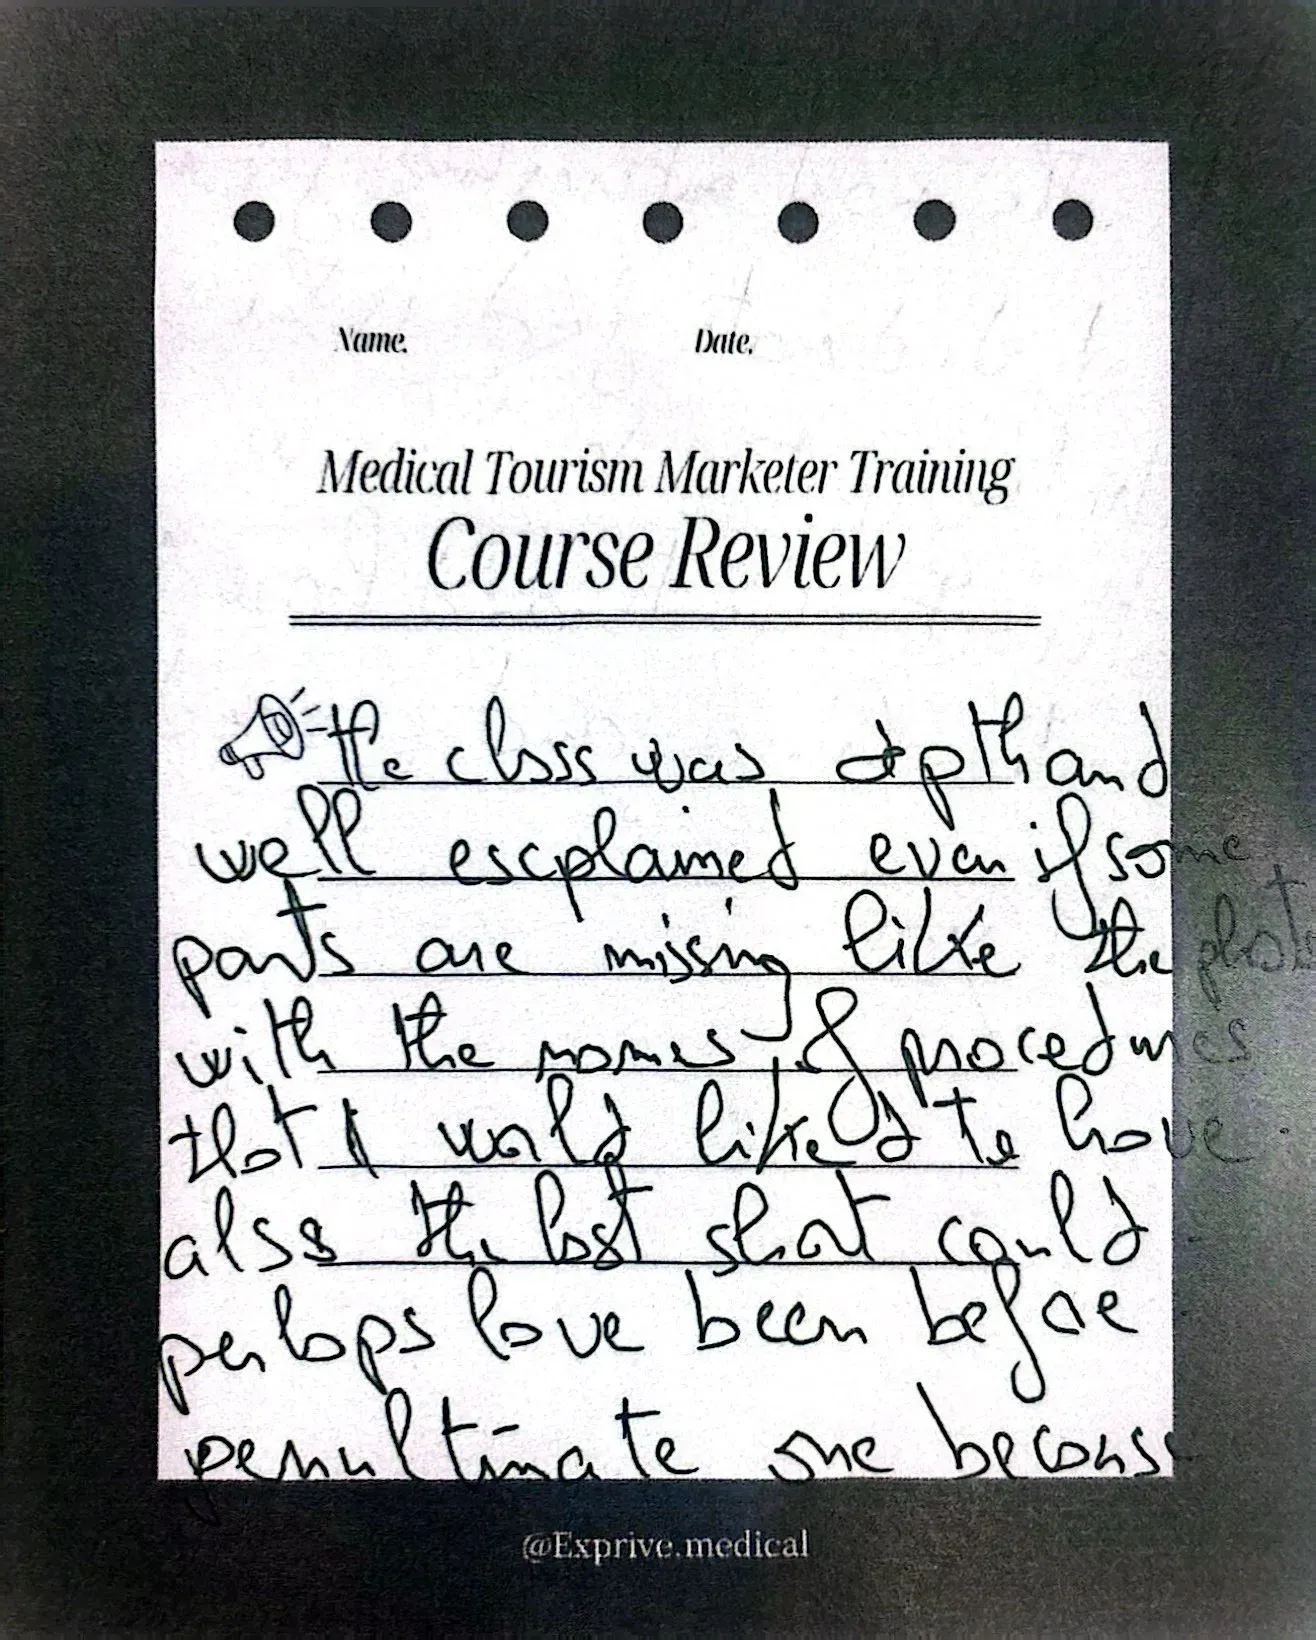 Name.
Date.
Medical Tourism Marketer Training
Course Review
the class was depth and
well escplained even if some
parts are missing like the
with the names of procedures
that I would liked to have
also the last shot could
perhaps have been before
penultimate one becouse
@Exprive.medical